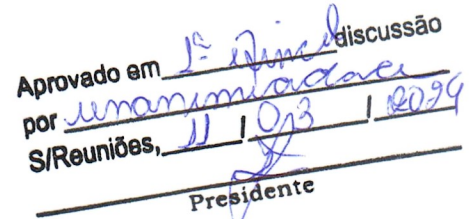 Aprovado em 1ª e única discussão
por unanimidade
S/Reuniões, 11 / 03 / 2024
Presidente